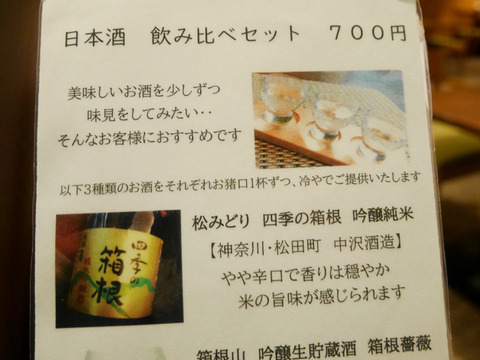 日本酒　飲み比べセット　７００円
美味しいお酒を少しずつ
味見をしてみたい‥
そんなお客様におすすめです
以下3種類のお酒をそれぞれお猪口1杯ずつ、冷やでご提供いたします
四季の
箱根
松みどり　四季の箱根　吟醸純米
【神奈川・松田町　中沢酒造】
やや辛口で香りは穏やか
米の旨味が感じられます
箱根山　吟醸生貯蔵酒　箱根薔薇